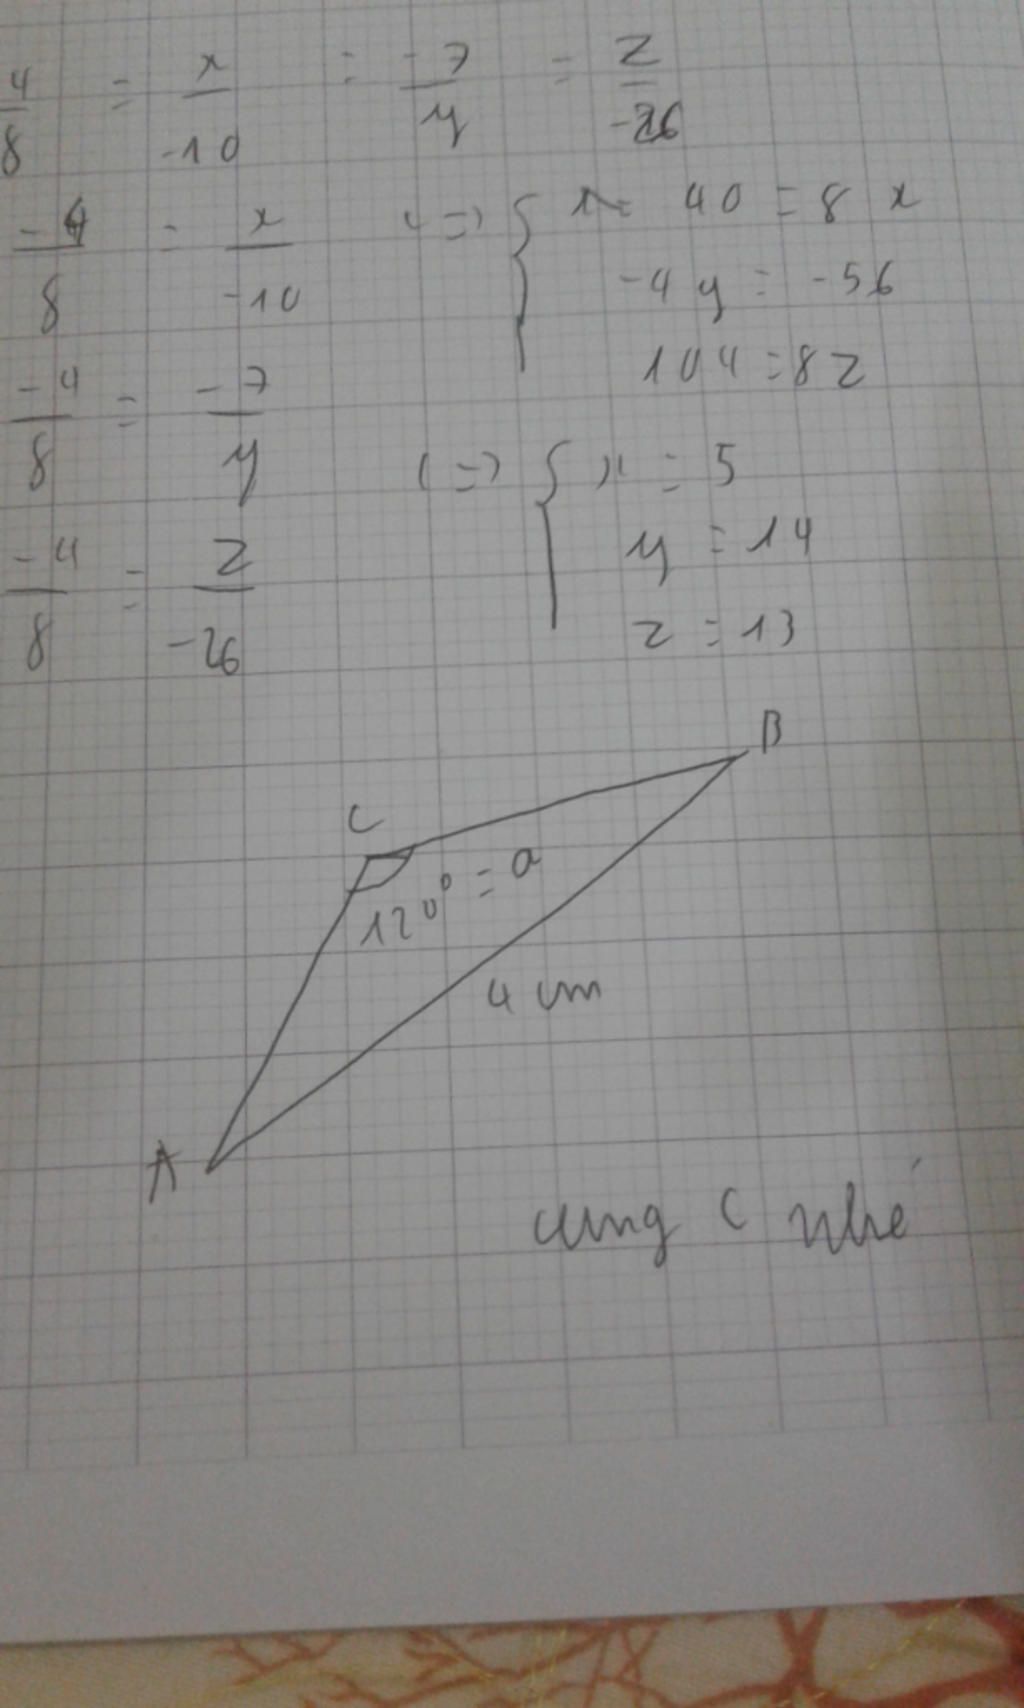 4/8 = x/-10 = -7/y = z/-26
-4/8 = x/-10 <=> { 40 = 8x
-4y = -56
104 = 8z
-4/8 = -7/y <=> { x = 5
y = 14
-4/8 = z/-26
z = 13
B
C
120° = a
4 cm
A
cung C nhé